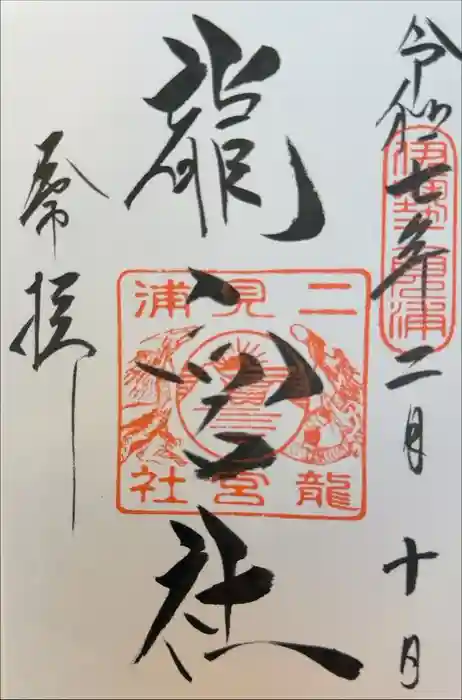 令和七年二月十日
伊勢二見浦
龍宮社
二見浦
龍宮社
拝